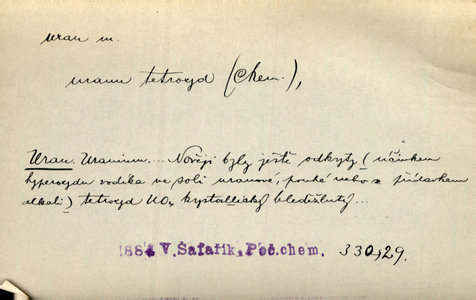 uran m.
uranu tetroxyd (Chem.),
Uran. Uranium.... Nověji byly ještě odkryty (účinkem
hyperoxydu vodíka na soli uranové, pouhé nebo s přídavkem
alkali) tetroxyd UO₄ krystallický bledožlutý...
1884 V. Šafařík, Poč. chem. 330,29.